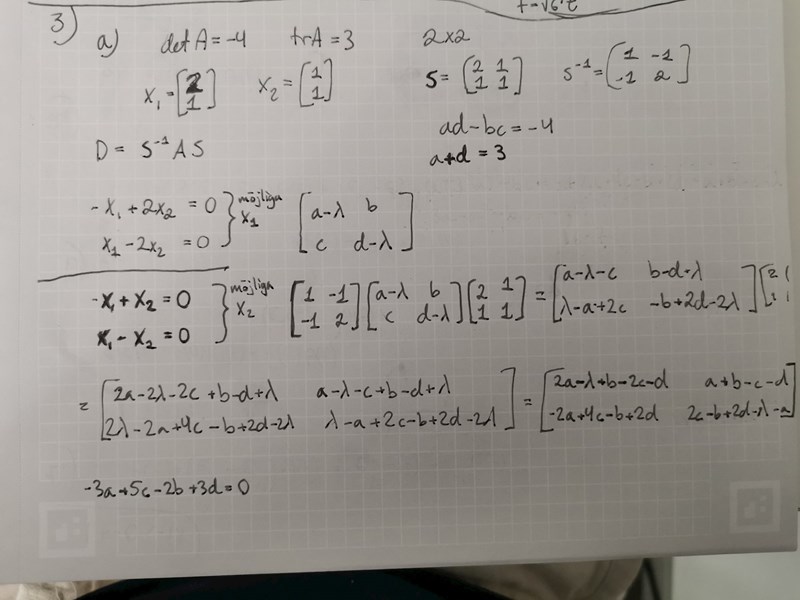 t-√6·t
3)
a) det A = -4 tr A = 3 2x2
x₁ = [2 1] x₂ = [1 1] S = (2 1 1 1) S⁻¹ = (1 -1 -1 2)
ad - bc = -4
D = S⁻¹ A S a+d = 3
-x₁ + 2x₂ = 0 } möjliga x₁ [a-λ b c d-λ]
x₁ - 2x₂ = 0
-x₁ + x₂ = 0 } möjliga x₂ [1 -1 -1 2] [a-λ b c d-λ] [2 1 1 1] = [a-λ-c b-d+λ λ-a+2c -b+2d-2λ] [2 1 1 1
x₁ - x₂ = 0
= [2a-2λ-2c+b-d+λ a-λ-c+b-d+λ
2λ-2a+4c-b+2d-2λ λ-a+2c-b+2d-2λ] = [2a-λ+b-2c-d a+b-c-d
-2a+4c-b+2d 2c-b+2d-λ-a]
-3a+5c-2b+3d=0